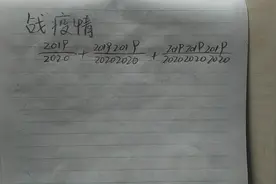 战疫情
2019/2020 + 20192019/20202020 + 201920192019/202020202020